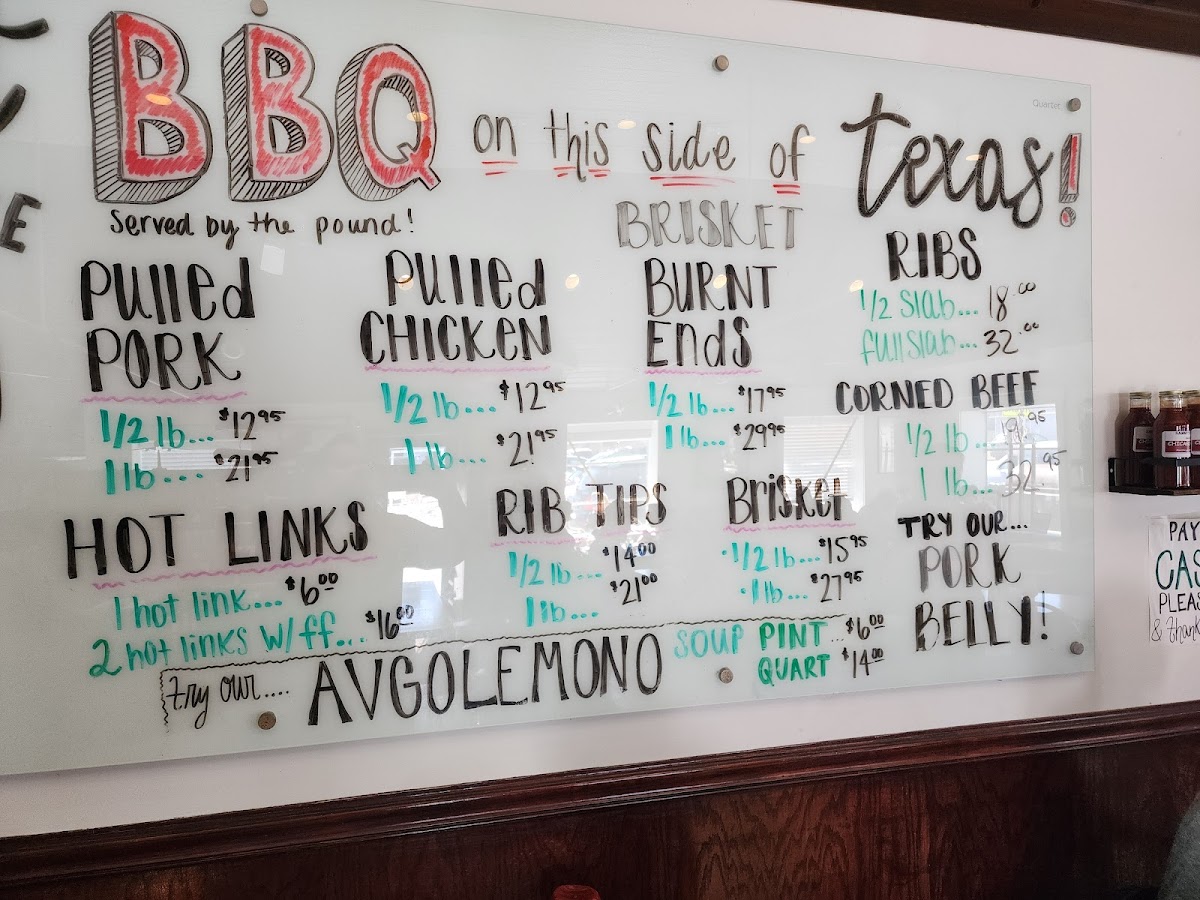 BBQ on this side of texas!
Served by the pound!
Pulled
PORK
1/2 lb... $12.95
1 lb... $21.95
Pulled
CHICKEN
1/2 lb... $12.95
1 lb... $21.95
BRISKET
BURNT
Ends
1/2 lb... $17.95
1 lb... $29.95
RIBS
1/2 slab... 18.00
full slab... 32.00
CORNED BEEF
1/2 lb...
1 lb... 32.95
HOT LINKS
1 hot link... $6.00
2 hot links w/ ff... $16.00
RIB TIPS
1/2 lb... $14.00
1 lb... $21.00
Brisket
1/2 lb... $15.95
1 lb... $27.95
TRY OUR...
PORK
BELLY!
try our.... AVGOLEMONO SOUP PINT... $6.00
QUART $14.00
Quartet
PAY
PLEAS
& thank